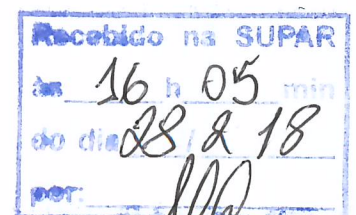 Recebido na SUPAR
às 16 h 05 min
do dia 28 / 2 / 18
por: